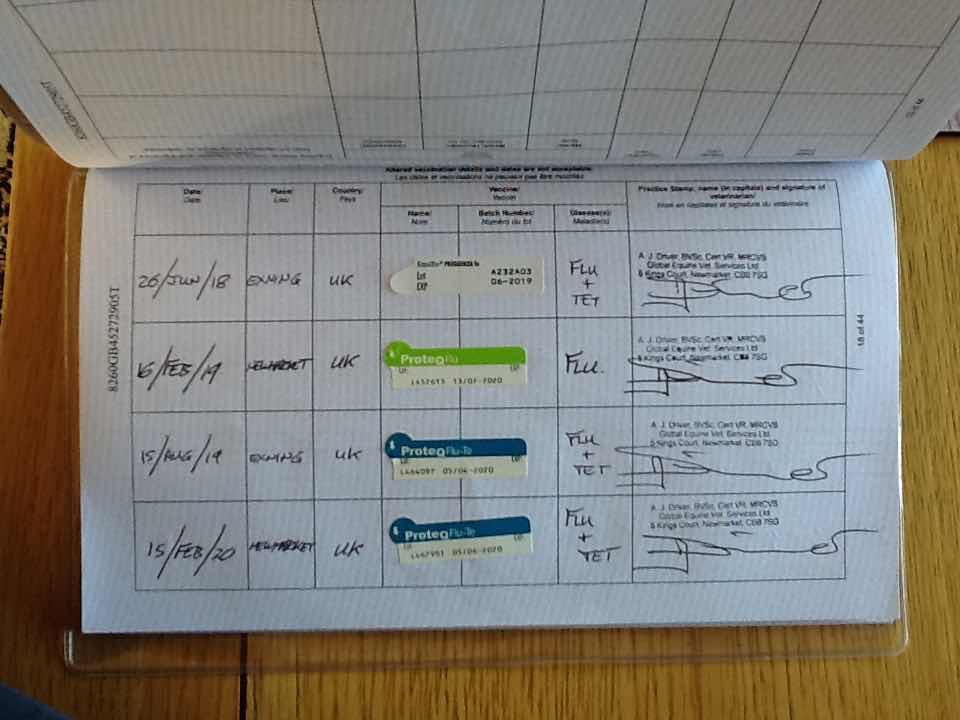 Altered vaccination details and dates are not acceptable.
Date/ Place/ Country/ Vaccine/ Practice Stamp, name (in capitals) and signature of
Date Lieu Pays Vaccin veterinarian/
Name/ Batch Number/ Disease(s)/
Nom Numéro du lot Maladie(s)
26/JUN/18 EXNING UK
Lot A232A03
EXP 06-2019
FLU
+
TET
A. J. Driver, BVSc, Cert VR, MRCVS
Global Equine Vet. Services Ltd.
5 Kings Court, Newmarket, CB8 7SG
16/FEB/19 NEWMARKET UK
ProteqFlu
L457613 13/07-2020
FLU.
A. J. Driver, BVSc, Cert VR, MRCVS
Global Equine Vet. Services Ltd.
5 Kings Court, Newmarket, CB8 7SG
15/AUG/19 EXNING UK
ProteqFlu-Te
L464097 05/04-2020
FLU
+
TET
A. J. Driver, BVSc, Cert VR, MRCVS
Global Equine Vet. Services Ltd.
5 Kings Court, Newmarket, CB8 7SG
15/FEB/20 NEWMARKET UK
ProteqFlu-Te
L467951
FLU
+
TET
A. J. Driver, BVSc, Cert VR, MRCVS
Global Equine Vet. Services Ltd.
5 Kings Court, Newmarket, CB8 7SG
8260GB45272905T
of 44